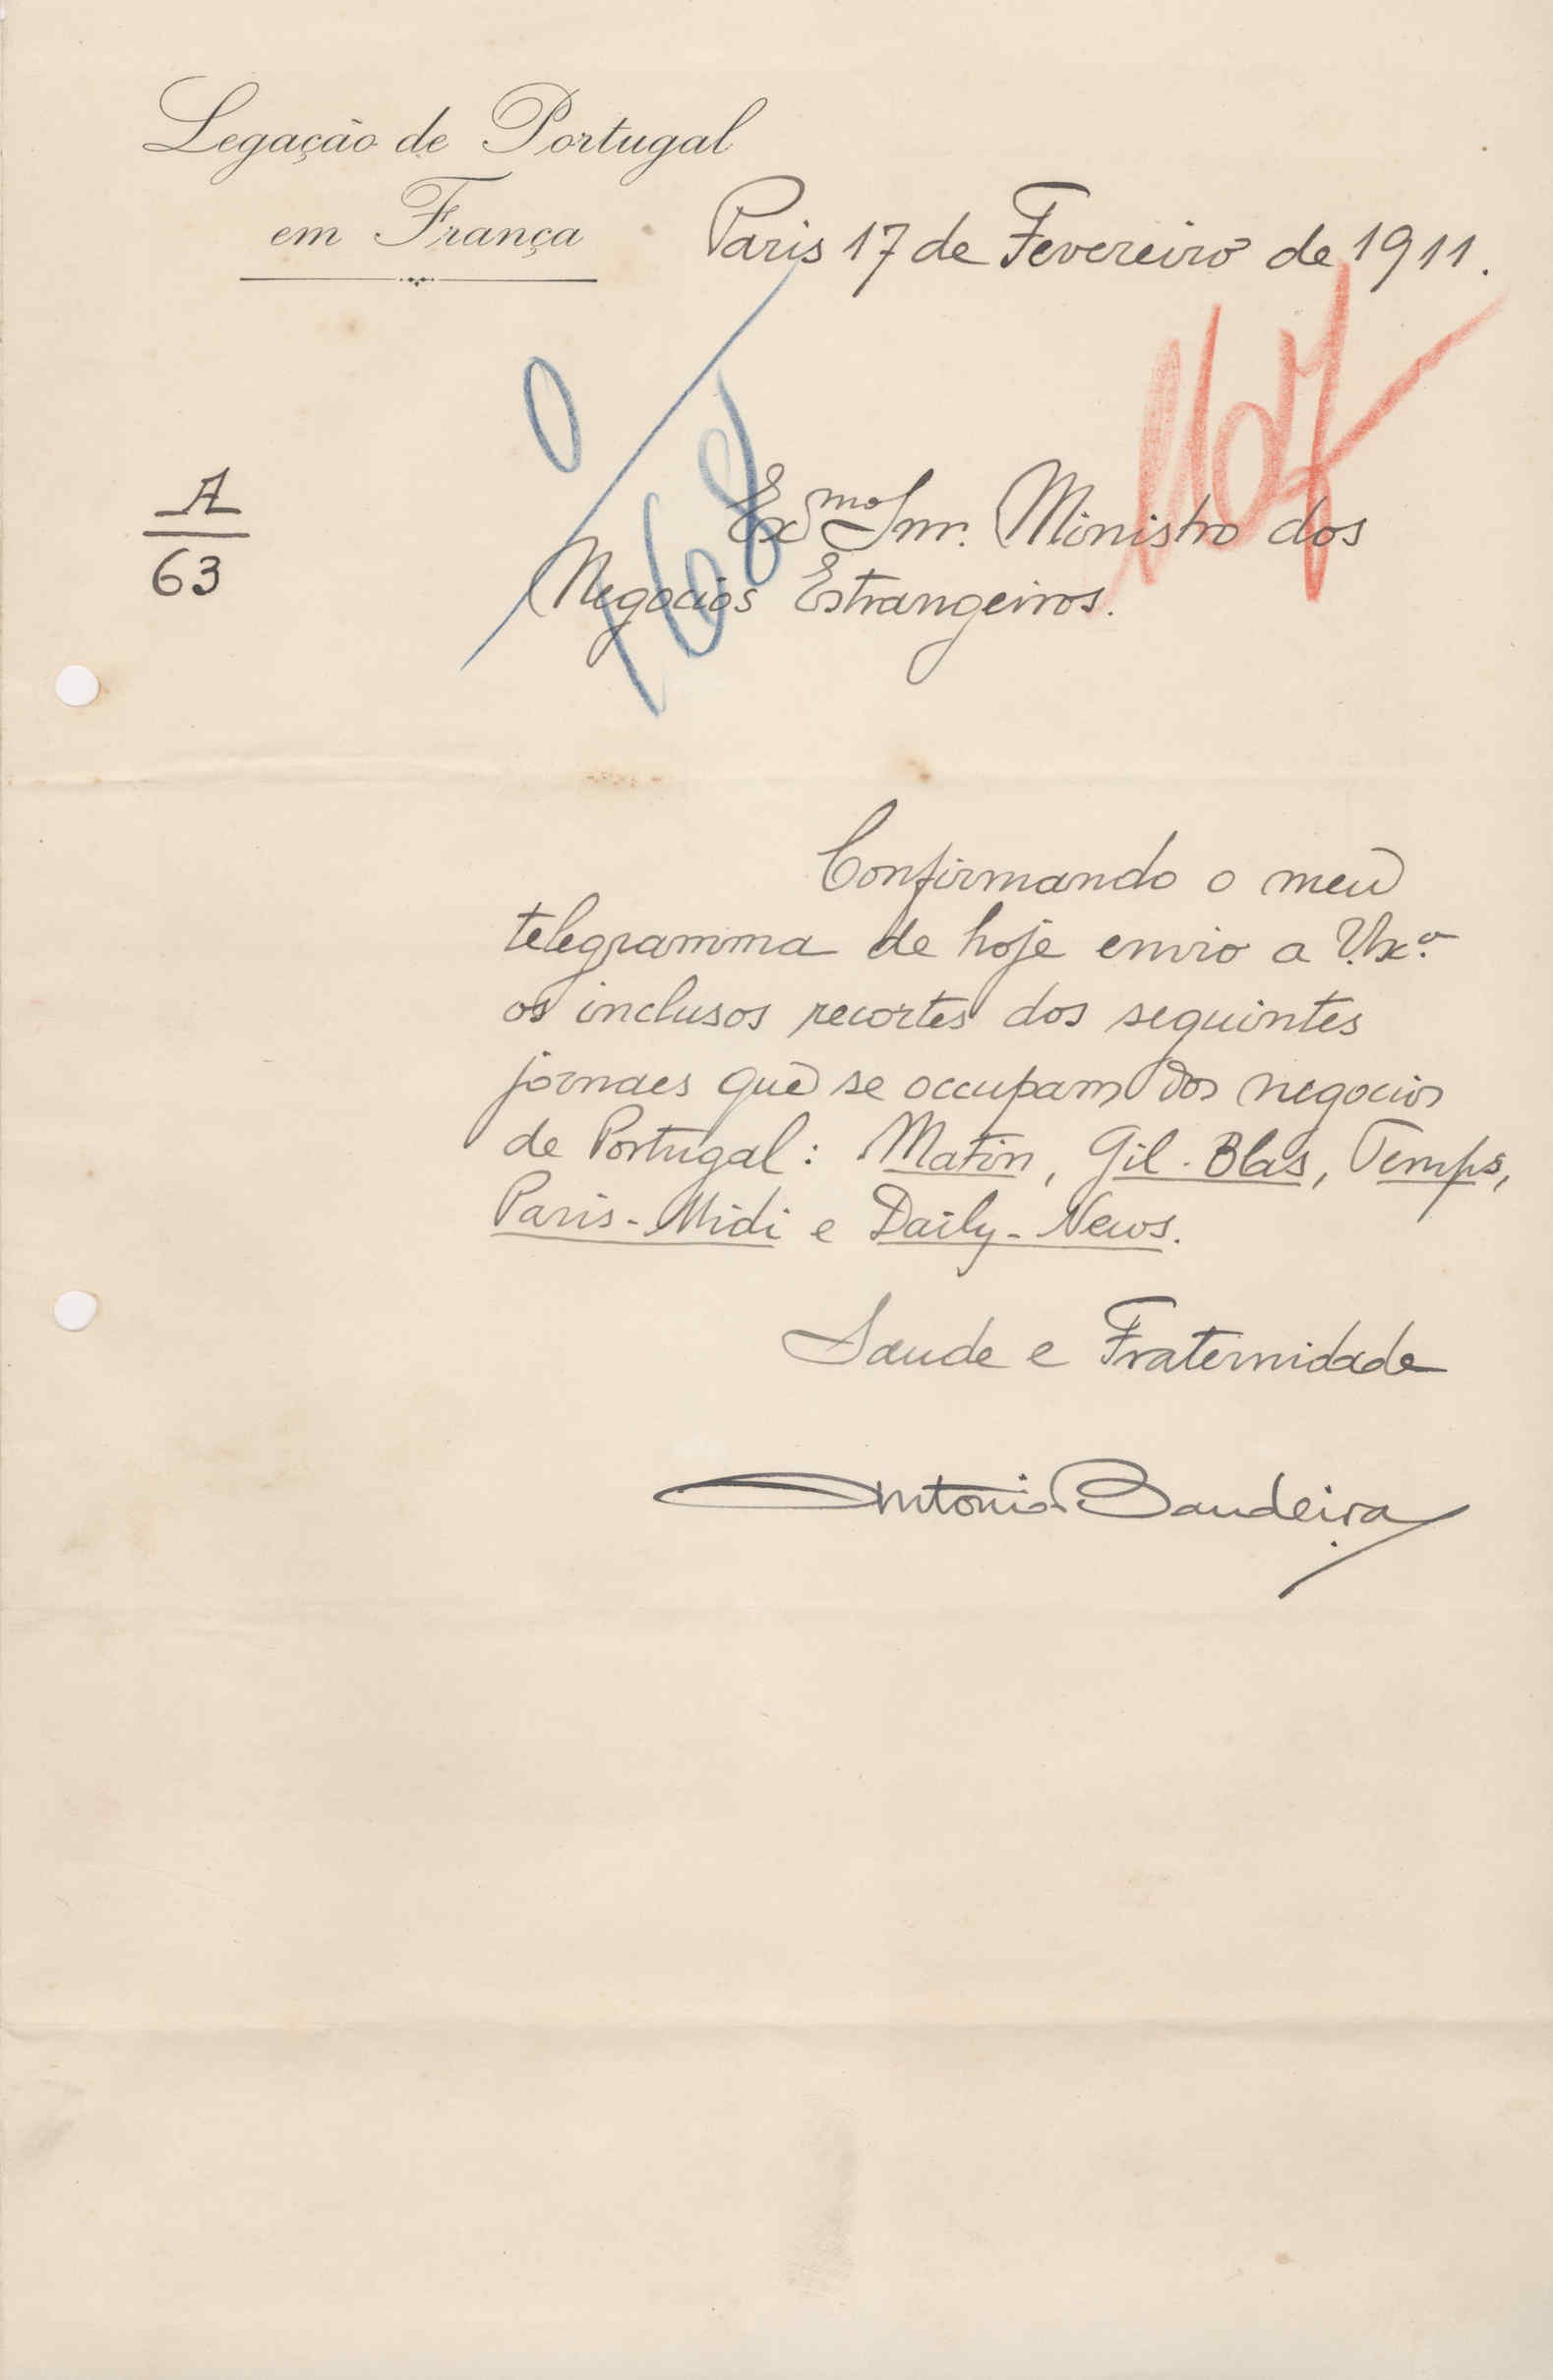 Legação de Portugal
em França
Paris 17 de Fevereiro de 1911.
A
63
1107
Exmo Snr. Ministro dos
Negocios Estrangeiros.
Confirmando o meu
telegramma de hoje envio a V.Exa
os inclusos recortes dos seguintes
jornaes que se occupam dos negocios
de Portugal: Matin, Gil-Blas, Temps,
Paris-Midi e Daily-News.
Saude e Fraternidade
Antonio Bandeira